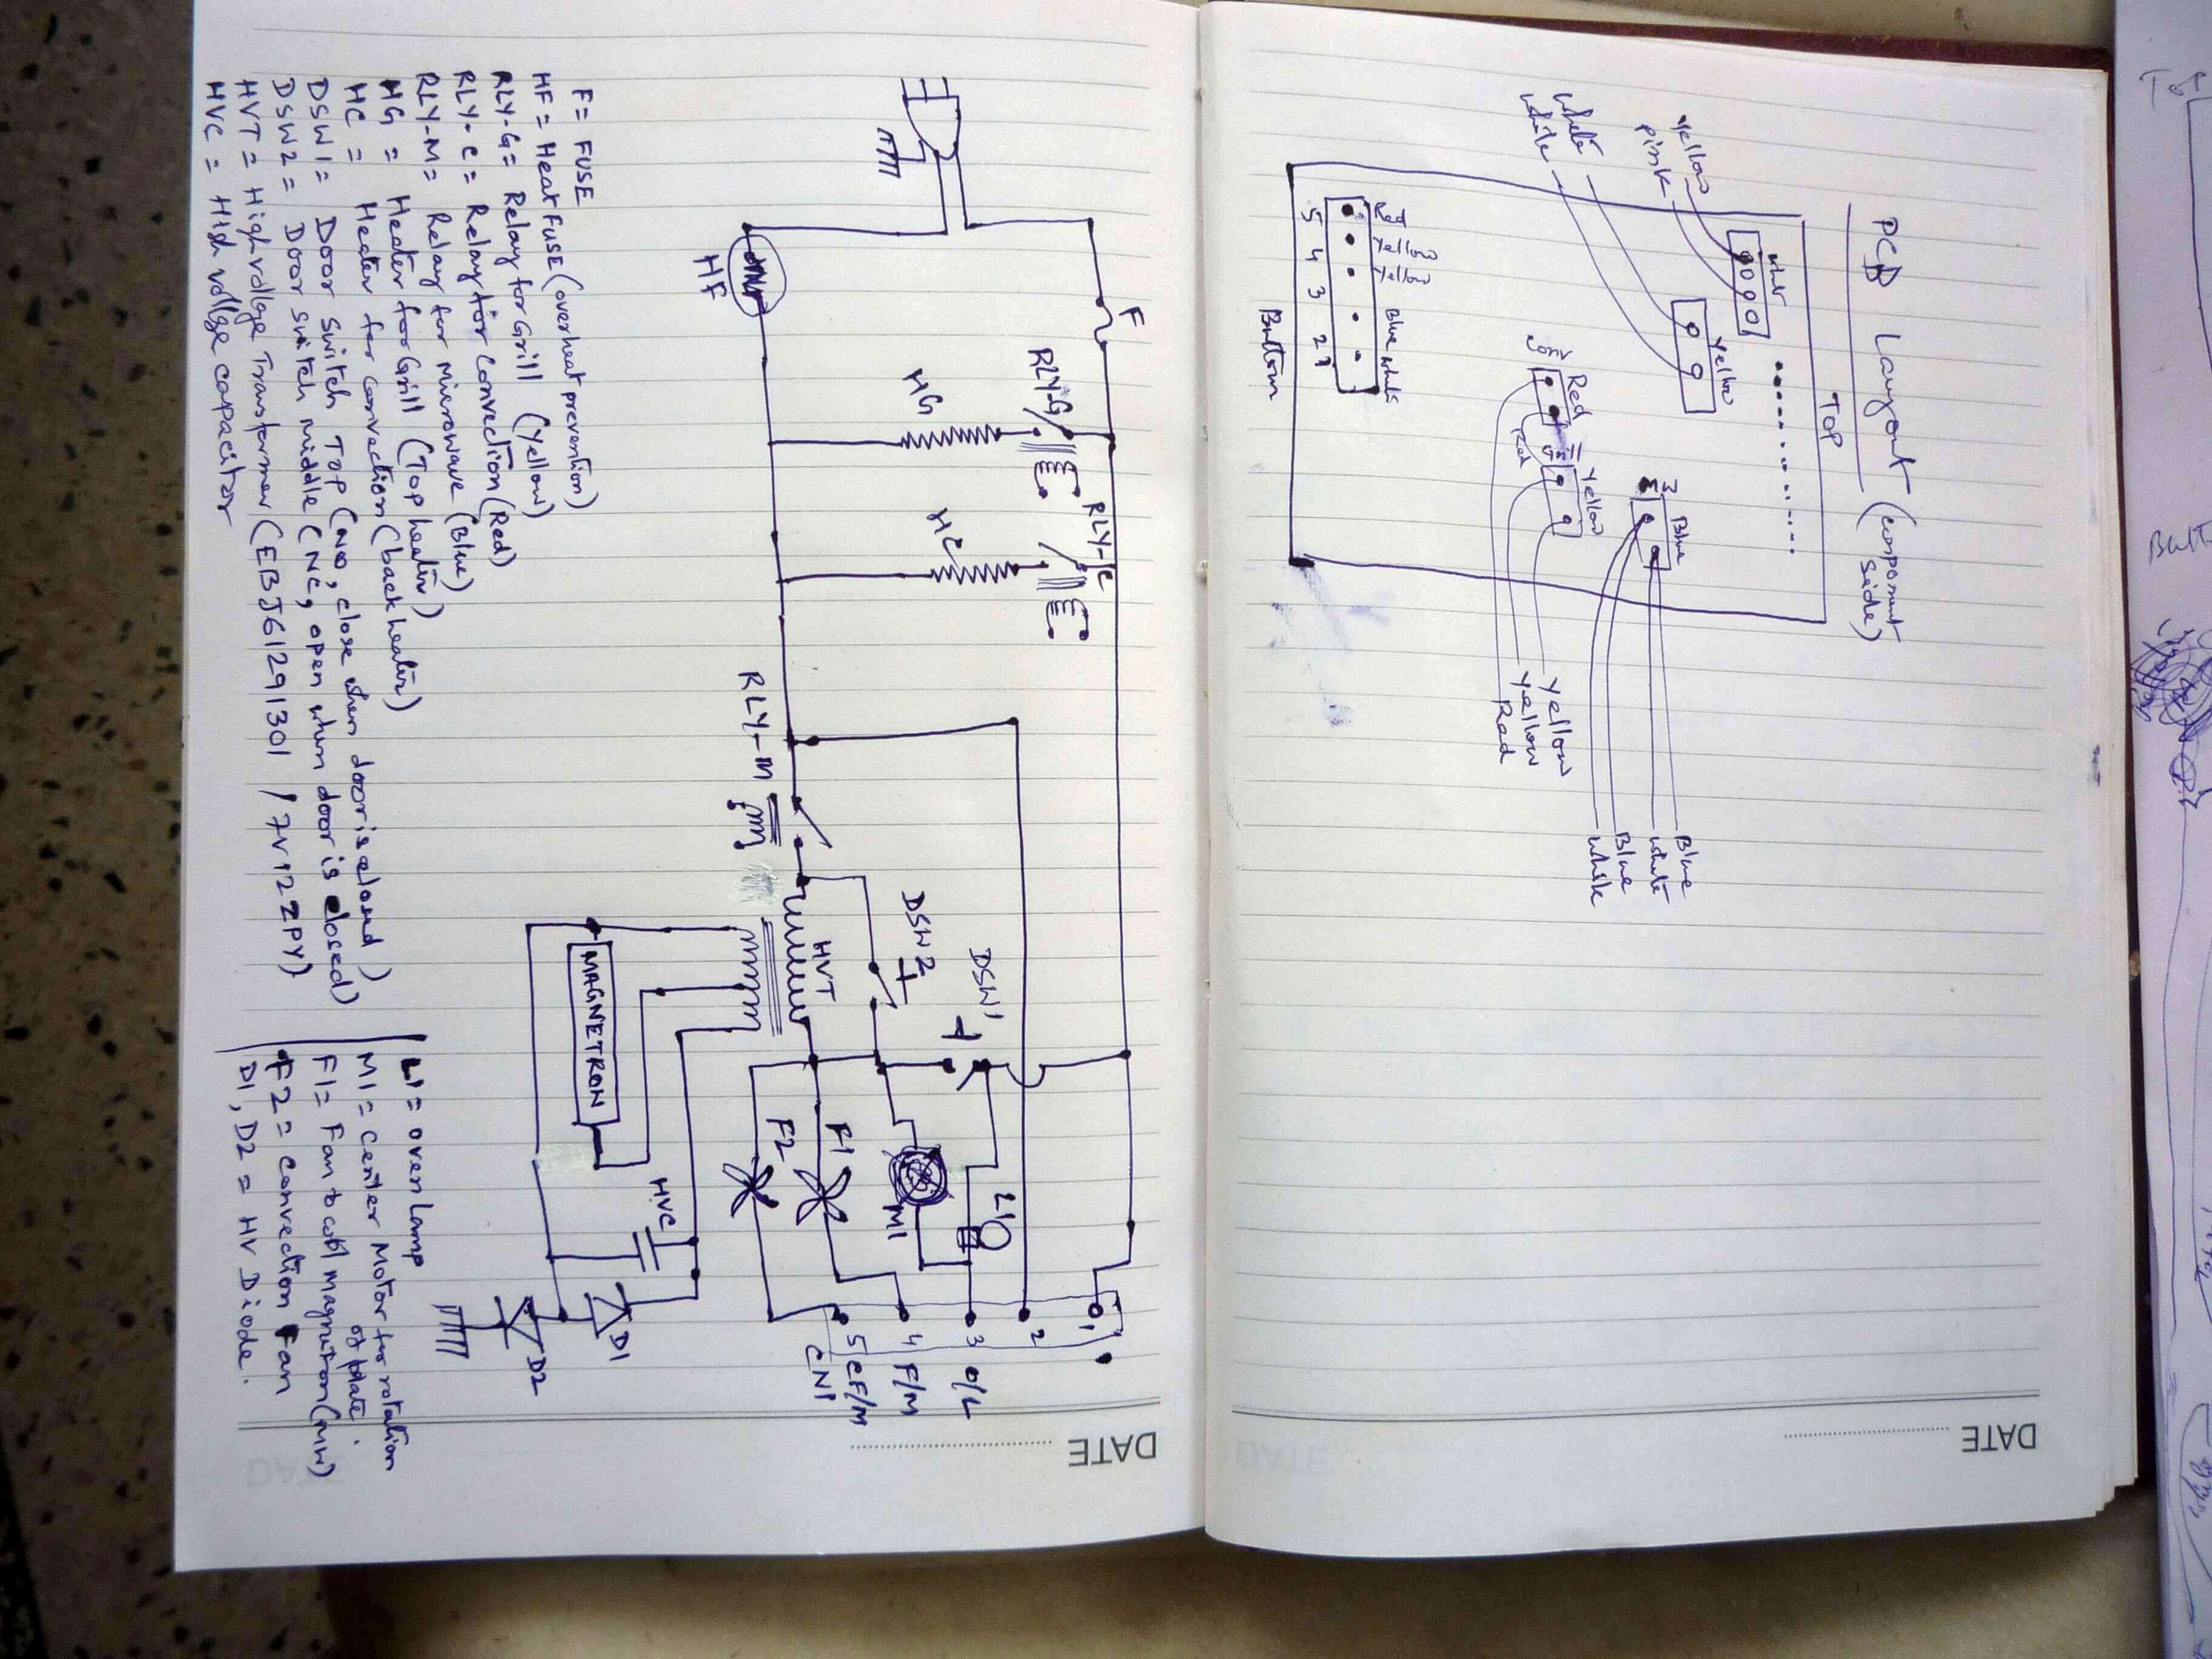 PCB Layout (component
side)
TOP
Yellow
Pink
white
white
Yellow
Blue
Red
Yellow
Red
Yellow
Yellow
Red
Blue
white
Blue
white
Red
Yellow
Yellow
Blue
5 4 3 2 1
Buttom
DATE
F
RLY-G
HG
RLY-C
HC
HF
RLY-M
DSW2
DSW1
HVT
MAGNETRON
F2
F1
M1
L1
HVC
D1
D2
1
2
3 O/L
4 F/M
5 CF/M
CN1
F = FUSE
HF = Heat Fuse (over heat prevention)
RLY-G = Relay for Grill (Yellow)
RLY-C = Relay for convection (Red)
RLY-M = Relay for Microwave (Blue)
HG = Heater for Grill (Top heater)
HC = Heater for convection (back heater)
DSW1 = Door Switch Top (NO, close when door is closed)
DSW2 = Door switch middle (NC, open when door is closed)
HVT = High voltge Transformer (EBJ61291301 / 7V122PY)
HVC = High voltge capacitor
L1 = oven lamp
M1 = center Motor for rotation
of plate.
F1 = Fan to cool magnetron (MW)
F2 = convection Fan
D1, D2 = HV Diode.
DATE